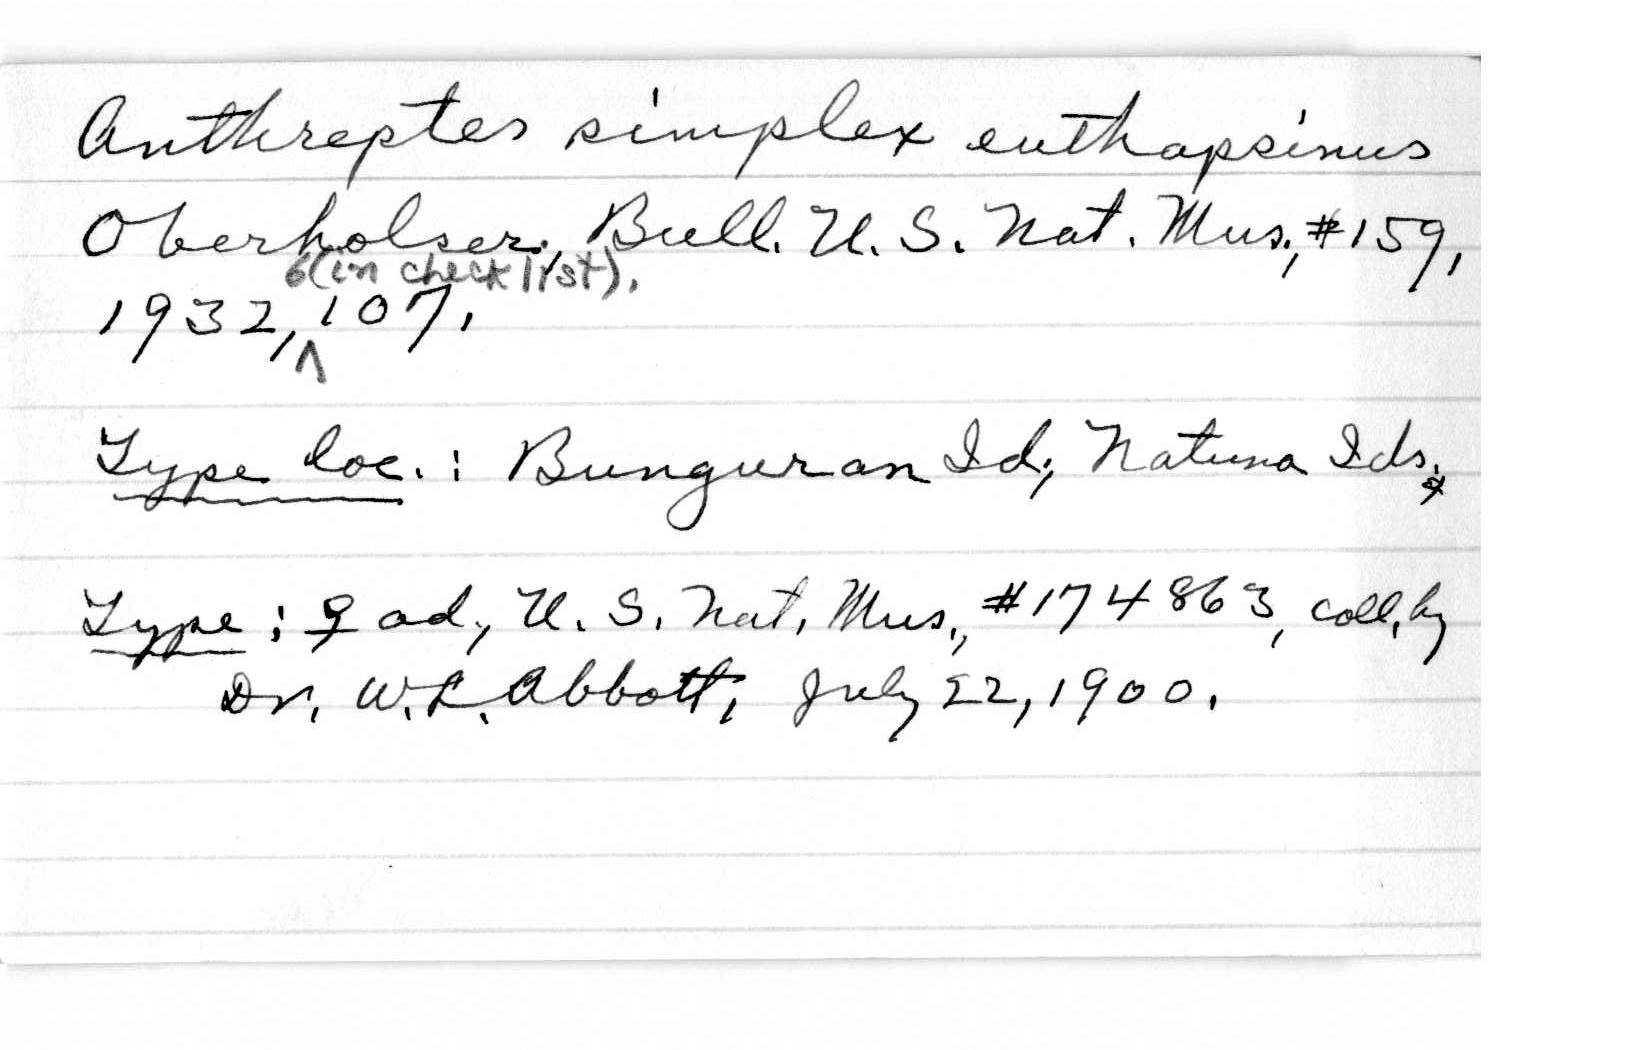 Anthreptes simplex euthapsinus
Oberholser, Bull. U. S. Nat. Mus., #159,
6(in checklist),
1932, 107.
Type loc.: Bunguran Id., Natuna Ids.
Type: ♀ ad., U. S. Nat. Mus., #174863, coll. by
Dr. W. L. Abbott, July 22, 1900.